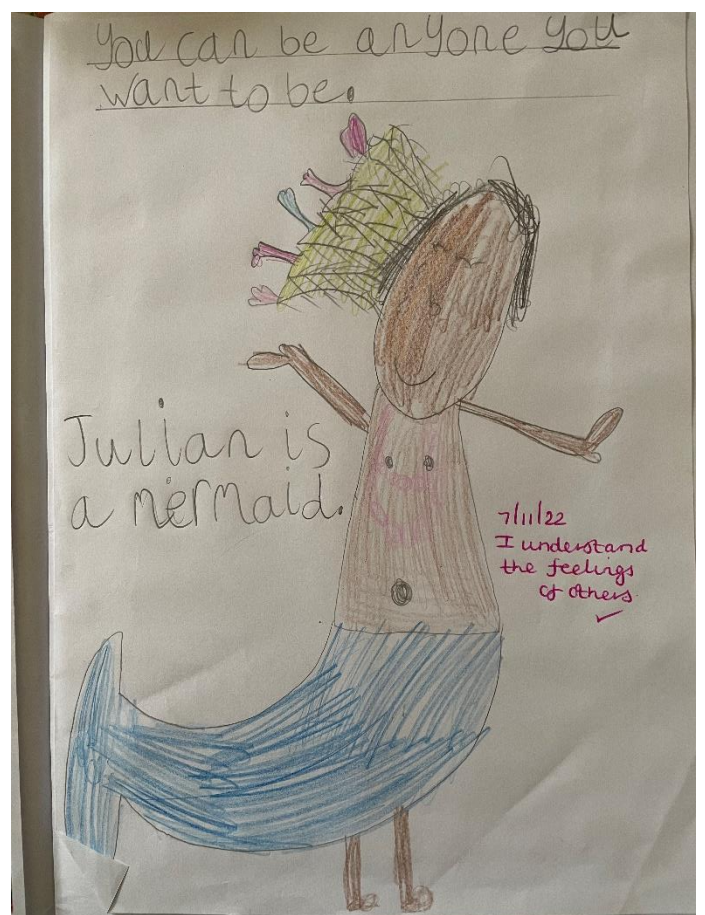 You can be anyone you
want to be.
Julian is
a mermaid.
7/11/22
I understand
the feelings
of others
✓